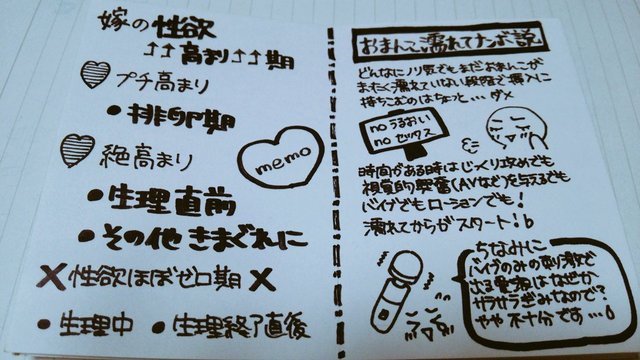 嫁の性欲
↑↑高まり↑↑期
プチ高まり
●排卵期
絶高まり
●生理直前
●その他きまぐれに
✕性欲ほぼゼロ期✕
●生理中 ●生理終了直後
memo
おまんこ濡れてナンボ説
どんなにノリ気でもまだおまんこが
まったく濡れていない段階で挿入に
持ちこむのはちょっと…ダメ
no うるおい
no セックス
時間がある時はじっくり攻めでも
視覚的興奮(AVなど)を与えるでも
バイブでもローションでも!
濡れてからがスタート!
ちなみに
バイブのみの刺激で
出る愛液はなぜか
サラサラぎみなので?
やや不十分です…